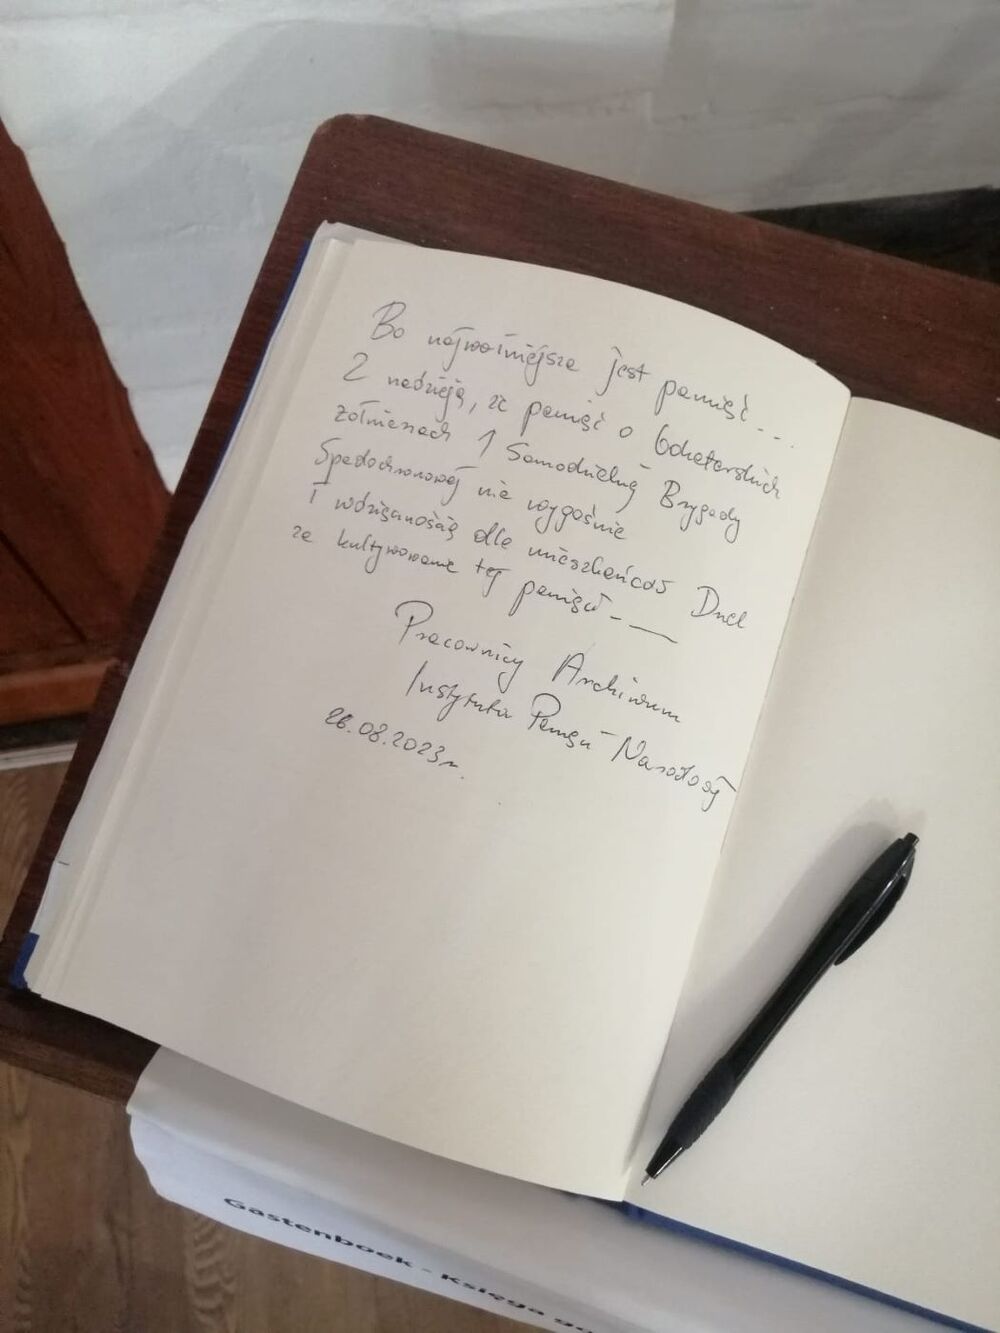 Bo najważniejsza jest pamięć...
Z nadzieją, że pamięć o bohaterskich
żołnierzach 1 Samodzielnej Brygady
Spadochronowej nie wygaśnie
I wdzięcznością dla mieszkańców Driel
za kultywowanie tej pamięci.
Pracownicy Archiwum
Instytutu Pamięci Narodowej
26.08.2023r.
Gastenboek - Księga go